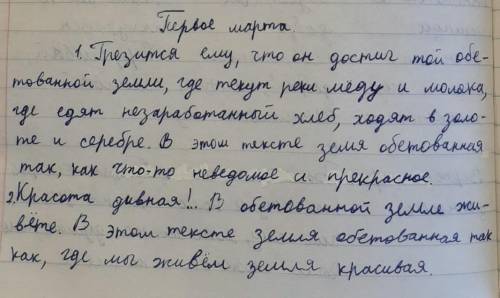 Первое марта.
1. Грезится ему, что он достиг той обе-
тованной земли, где текут реки мёду и молока,
где едят незаработанный хлеб, ходят в золо-
те и серебре. В этом тексте земя обетованная
так, как что-то неведомое и прекрасное.
2. Красота дивная!.. В обетованной земле жи-
вёте. В этом тексте земля обетованная так
как, где мы живём земля красивая.